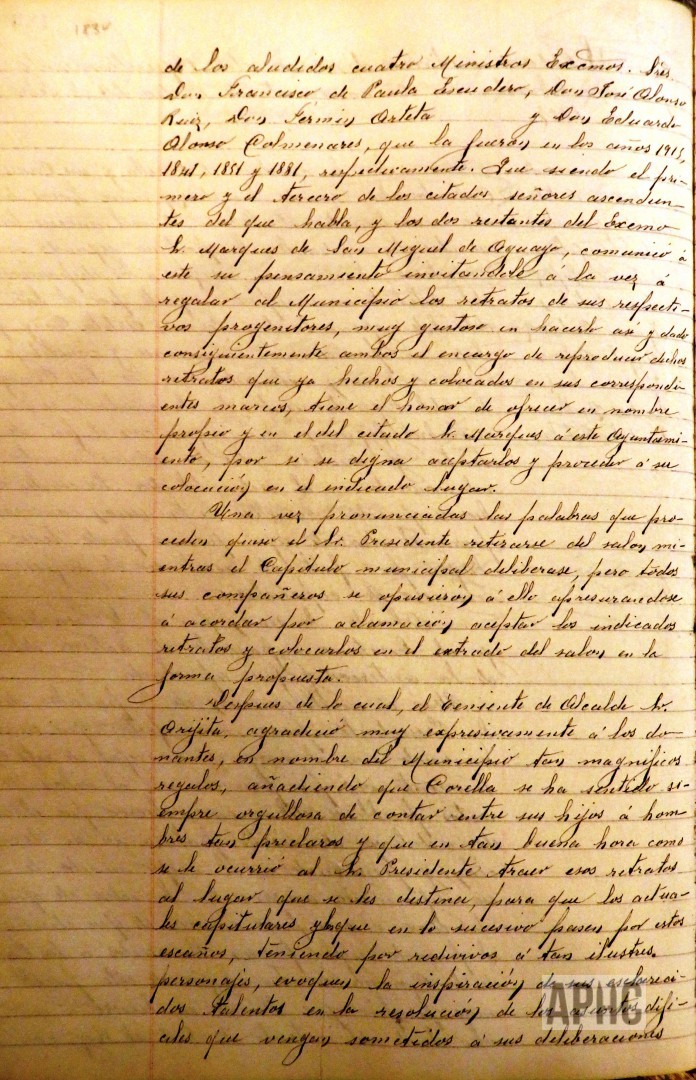 183v
de los aludidos cuatro Ministros Excmos. Sres.
Don Francisco de Paula Escudero, Don José Alonso
Ruiz, Don Fermin Arteta y Don Eduardo
Alonso Colmenares, que la fueron en los años
1841, 1851 y 1881, respectivamente. Que siendo el pri-
mero y el tercero de los citados señores ascendien-
tes del que habla, y los dos restantes del Excmo
Sr. Marques de San Miguel de Aguayo, comunicó á
este su pensamiento invitandole á la vez á
regalar al Municipio los retratos de sus respecti-
vos progenitores, muy gustoso en hacerlo asi y dado
consiguientemente ambos el encargo de reproducir dichos
retratos que ya hechos y colocados en sus correspondi-
entes marcos, tiene el honor de ofrecer en nombre
propio y en el del citado Sr. Marques á este Ayuntami-
ento, por si se digna aceptarlos y proceder á su
colocación en el indicado lugar.
Una vez pronunciadas las palabras que pre-
ceden quiso el Sr. Presidente retirarse del salon mi-
entras el Capitulo municipal deliberase, pero todos
sus compañeros se opusieron á ello apresurandose
á acordar por aclamación aceptar los indicados
retratos y colocarlos en el extrado del salon en la
forma propuesta.
Despues de lo cual, el Teniente de Alcalde Sr.
Arijita, agradeció muy expresivamente á los do-
nantes, en nombre del Municipio tan magnificos
regalos, añadiendo que Corella se ha sentido si-
empre orgullosa de contar entre sus hijos á hom-
bres tan preclaros y que en tan buena hora como
se le ocurrió al Sr. Presidente traer esos retratos
al lugar que se les destina, para que los actua-
les capitulares y los que en lo sucesivo pasen por estos
escaños, teniendo por redivivos á tan ilustres
personajes, evoquen la inspiración de sus esclareci-
dos talentos en la resolución de los asuntos difi-
ciles que vengan sometidos á sus deliberaciones
APHC